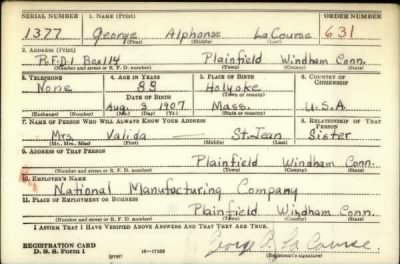 SERIAL NUMBER 1. NAME (Print) ORDER NUMBER
1377 George Alphonse LaCourse 631
(First) (Middle) (Last)
2. ADDRESS (Print)
R.F.D.1 Box 114 Plainfield Windham Conn.
(Number and street or R. F. D. number) (Town) (County) (State)
3. TELEPHONE 4. AGE IN YEARS 5. PLACE OF BIRTH 6. COUNTRY OF CITIZENSHIP
None 33 Holyoke
DATE OF BIRTH (Town or county)
Aug. 3 1907 Mass. U.S.A.
(Exchange) (Number) (Mo.) (Day) (Yr.) (State or country)
7. NAME OF PERSON WHO WILL ALWAYS KNOW YOUR ADDRESS 8. RELATIONSHIP OF THAT PERSON
Mrs. Valida — St.Jean Sister
(Mr., Mrs., Miss) (First) (Middle) (Last)
9. ADDRESS OF THAT PERSON
Plainfield Windham Conn.
(Number and street or R. F. D. number) (Town) (County) (State)
10. EMPLOYER'S NAME
National Manufacturing Company
11. PLACE OF EMPLOYMENT OR BUSINESS
Plainfield Windham Conn.
(Number and street or R. F. D. number) (Town) (County) (State)
I AFFIRM THAT I HAVE VERIFIED ABOVE ANSWERS AND THAT THEY ARE TRUE.
REGISTRATION CARD
D. S. S. Form 1 (over) 16—17105 George A. La Course.
(Registrant's signature)